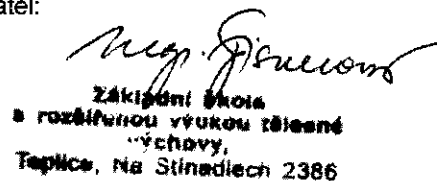 atel:
Mgr.
Základní škola
s rozšířenou výukou tělesné
výchovy,
Teplice, Na Stínadlech 2386